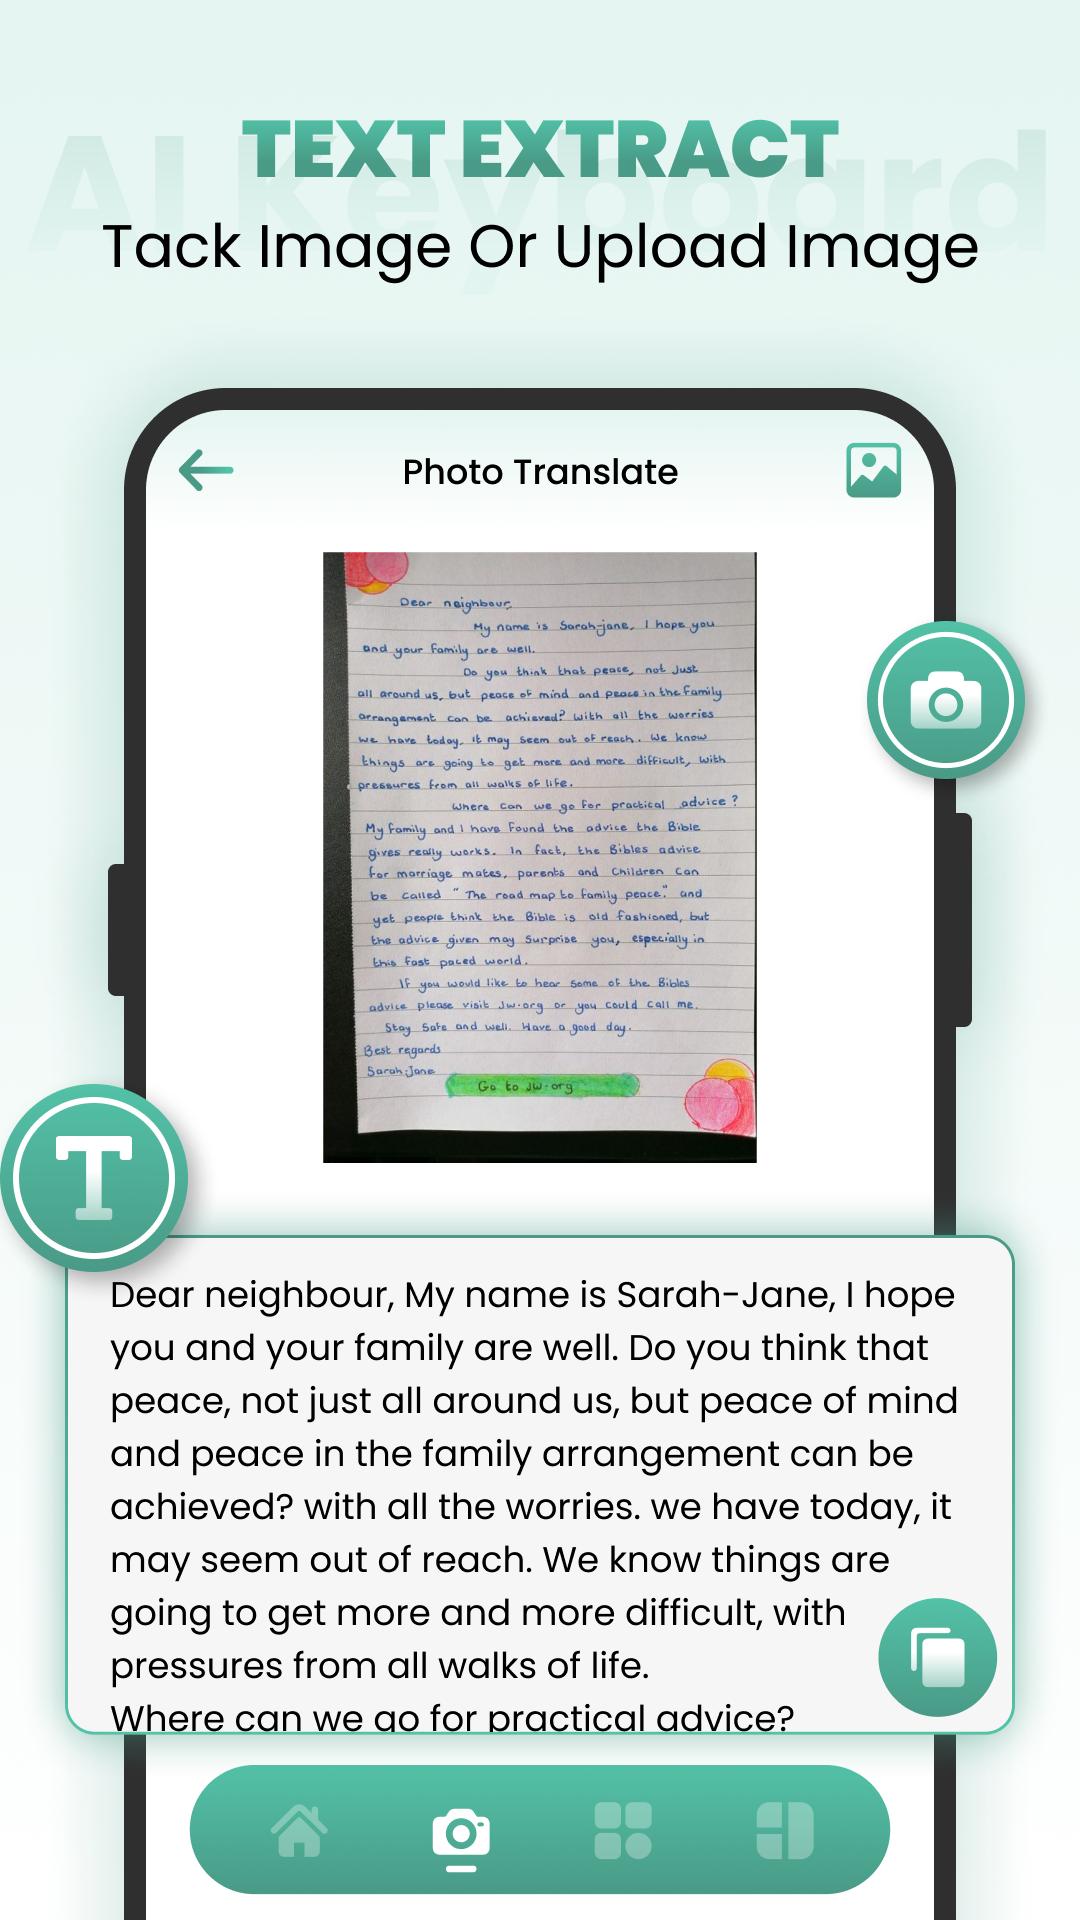 AI Keyboard
TEXT EXTRACT
Tack Image Or Upload Image
Photo Translate
Dear neighbour,
My name is Sarah-jane, I hope you
and your family are well.
Do you think that peace, not Just
all around us, but peace of mind and peace in the family
arrangement can be achieved? with all the worries
we have today, it may seem out of reach. We know
things are going to get more and more difficult, with
pressures from all walks of life.
Where can we go for practical advice?
My family and I have found the advice the Bible
gives really works. In fact, the Bibles advice
for marriage mates, parents and Children Can
be called "The road map to family peace." and
yet people think the Bible is old fashioned, but
the advice given may Surprise you, especially in
this fast paced world.
If you would like to hear some of the Bibles
advice please visit Jw.org or you could call me.
Stay Safe and well. Have a good day.
Best regards
Sarah-Jane
Go to JW.org
T
Dear neighbour, My name is Sarah-Jane, I hope
you and your family are well. Do you think that
peace, not just all around us, but peace of mind
and peace in the family arrangement can be
achieved? with all the worries. we have today, it
may seem out of reach. We know things are
going to get more and more difficult, with
pressures from all walks of life.
Where can we go for practical advice?